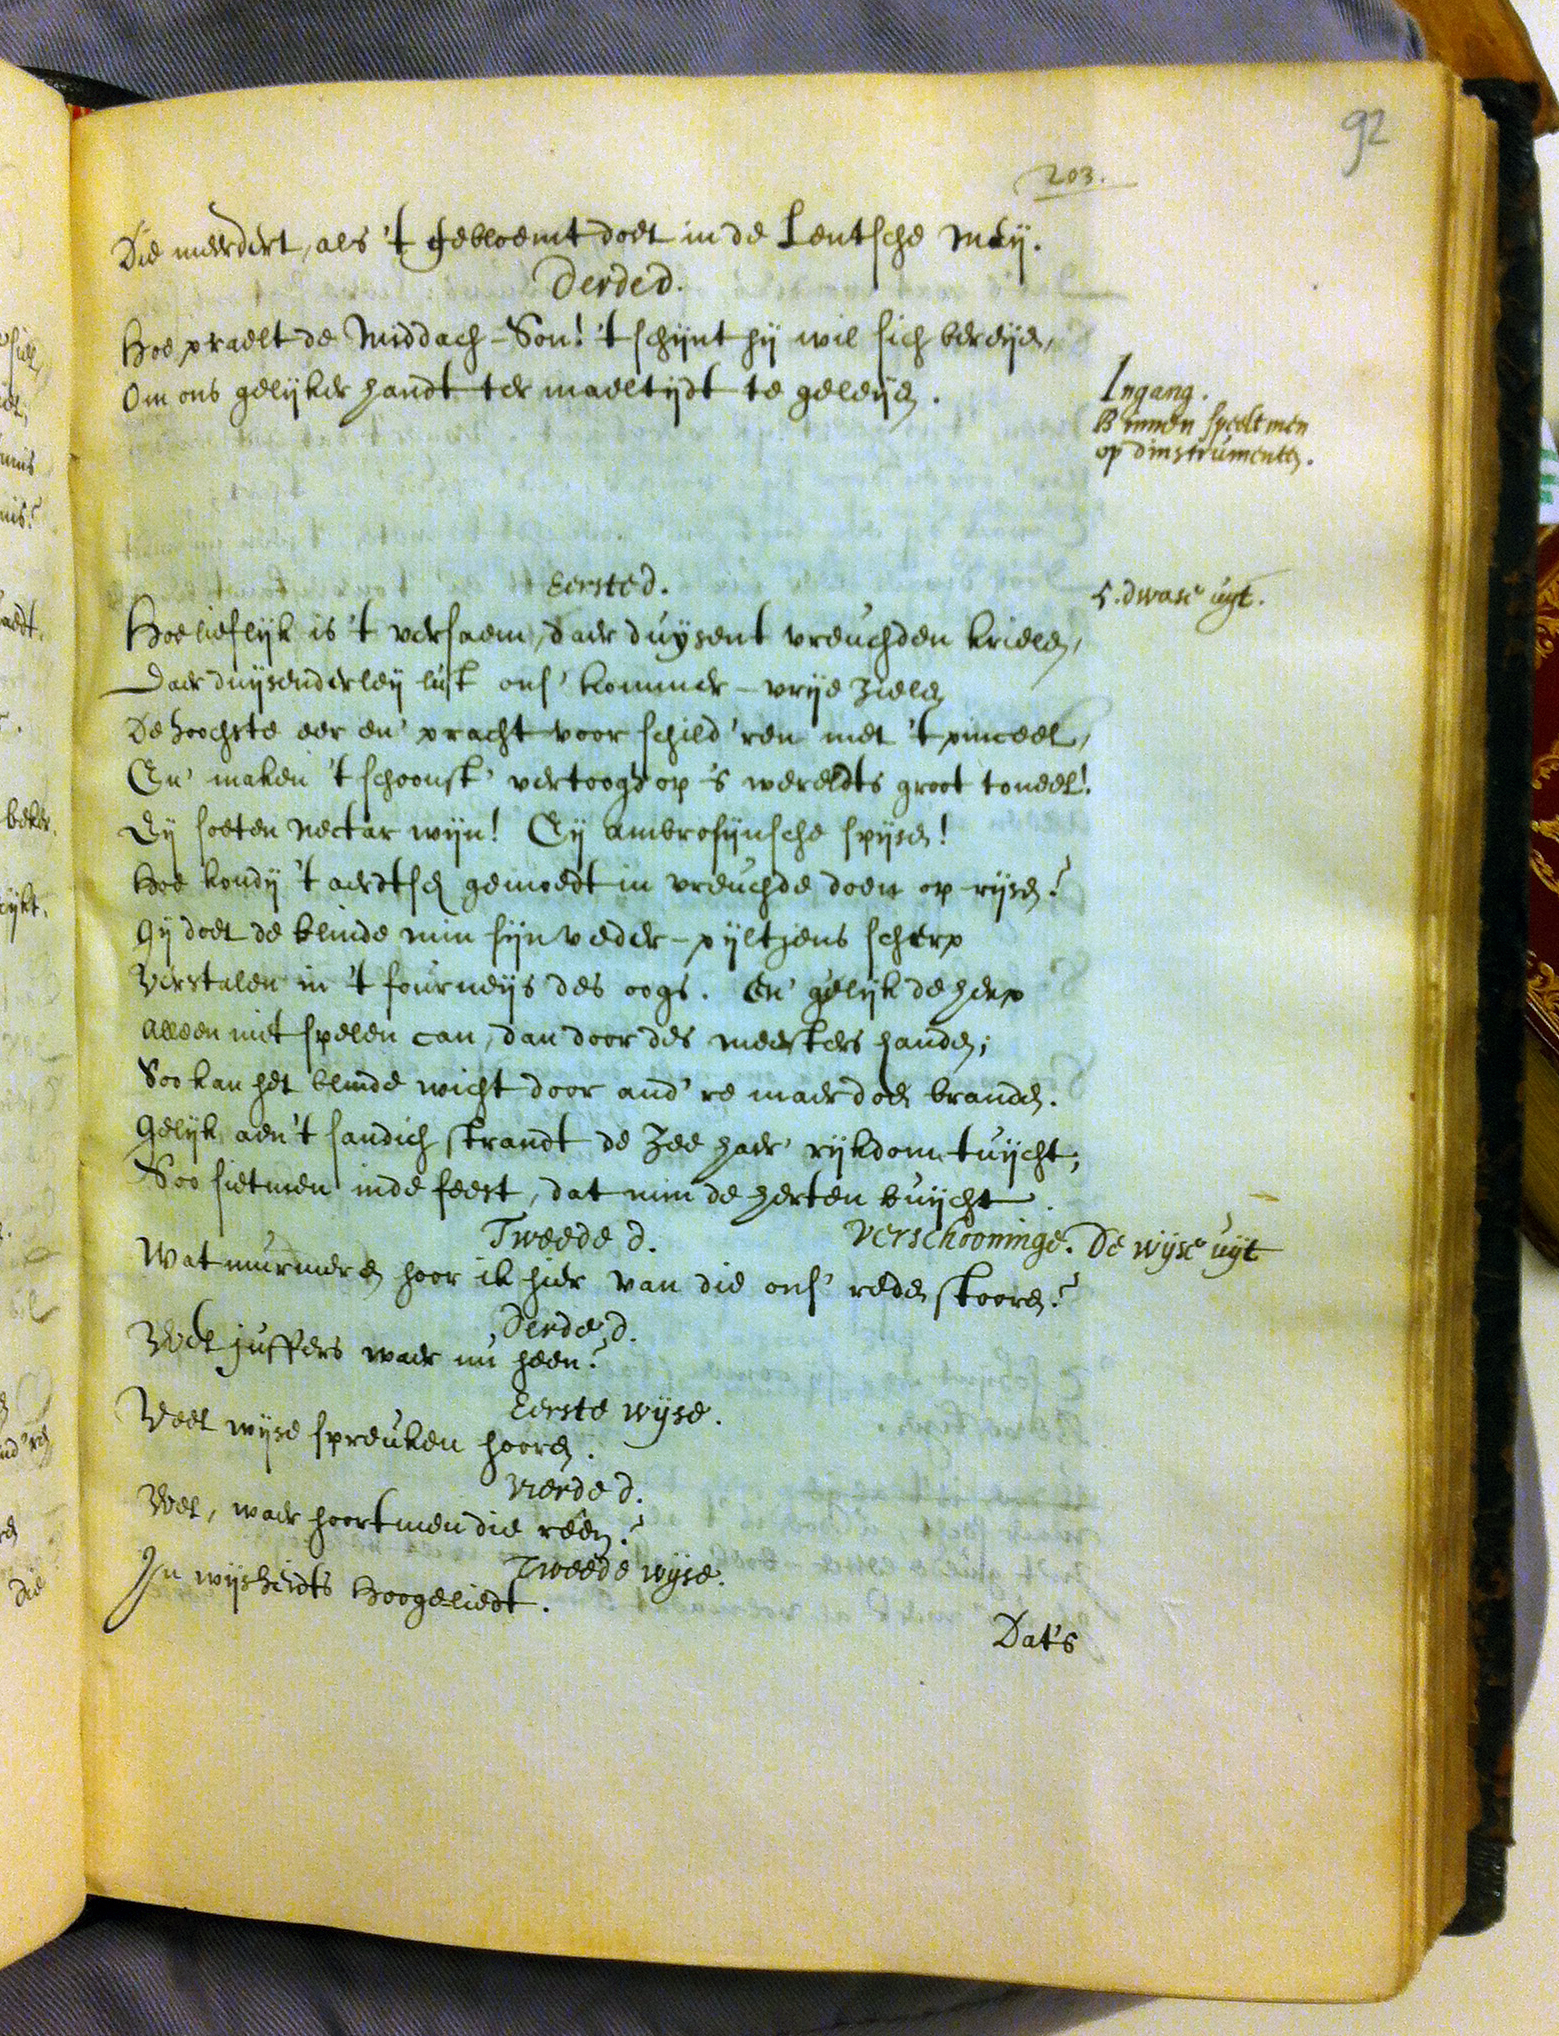 92
203.
Die meerdert, als 't gebloemt doet in de Lentsche Meij.
Derde d.
Hoe praelt de Middach-Son! 't schijnt hij wil sich bereijen,
Om ons gelijker handt ter maeltijdt te geleijen.
Ingang.
Binnen speelt men
op dinstrumenten.
Eerste d.
5. dwase uyt.
Hoe lieflijk is 't versaem, daer duijsent vreuchden krielen,
Daer duijsenderleij lust ons' kommer-vrije zielen
De hoochste eer en' pracht voor schild'ren met 't pinceel,
En' maken 't schoonst' vertoogh op 's wereldts groot toneel!
Eij soeten Nectar wijn! Eij ambrosijnsche spijsen!
Hoe kondij 't aerdtsch gemoedt in vreuchde doen op rijsen?
Gij doet de blinde min sijn veder-pijltjens scherp
Verstalen in 't fourneijs des oogs. En' gelijk de herp
Alleen niet spelen can, dan door des meesters handen;
Soo kan het blinde wicht door and're maer doen branden.
Gelijk aen 't sandich strandt de Zee haer' rijkdom tuijcht;
Soo sietmen inde feest, dat min de herten buijcht.
Tweede d.
Verschooninge. De wijse uijt
Wat murmeren hoor ik hier van die ons' reden stooren?
Derde d.
Wel juffers waer nu heen?
Eerste wijse.
Veel wijse spreuken hooren.
Vierde d.
Wel, waer hoortmen die reên?
Tweede wijse.
In wijsheidts Hoogeliedt.
Dat's